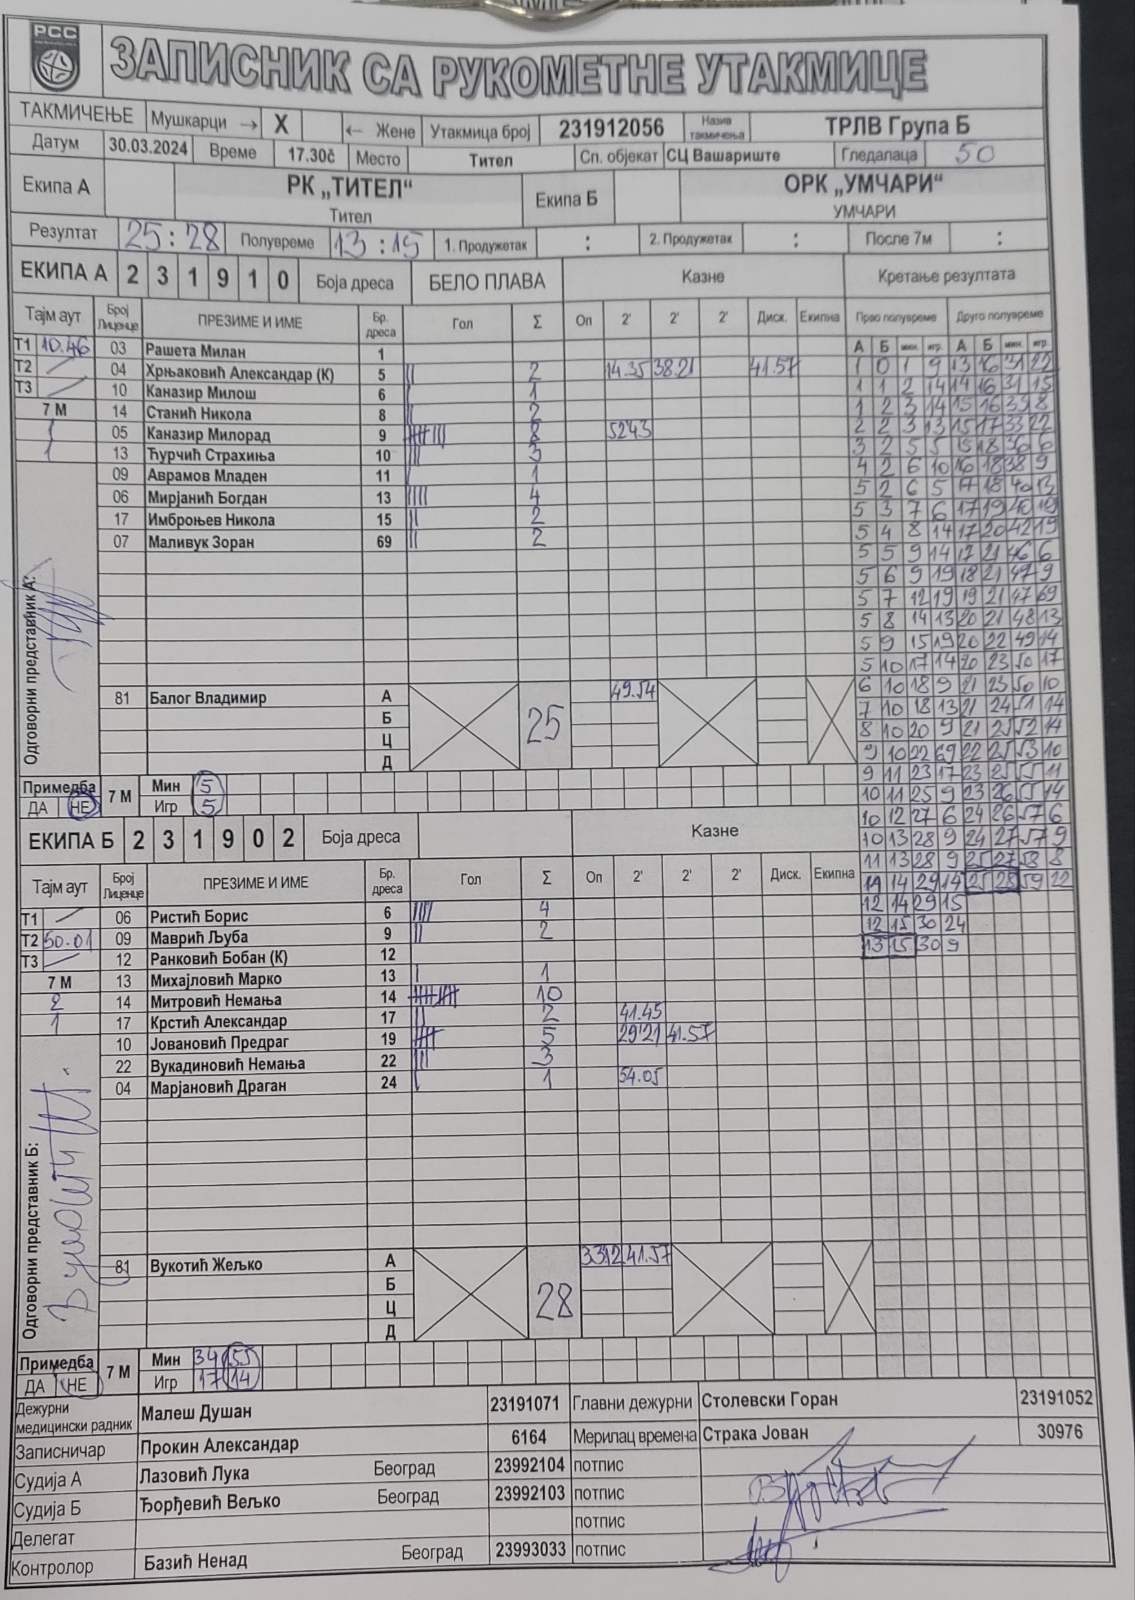 РСС
ЗАПИСНИК СА РУКОМЕТНЕ УТАКМИЦЕ
ТАКМИЧЕЊЕ Мушкарци → X ← Жене Утакмица број 231912056 Назив такмичења ТРЛВ Група Б
Датум 30.03.2024 Време 17.30č Место Тител Сп. објекат СЦ Вашариште Гледалаца 50
Екипа А РК „ТИТЕЛ“ Тител Екипа Б ОРК „УМЧАРИ“ УМЧАРИ
Резултат 25:28 Полувреме 13:15 1. Продужетак : 2. Продужетак : После 7м :
ЕКИПА А 2 3 1 9 1 0 Боја дреса БЕЛО ПЛАВА Казне Кретање резултата
Тајм аут Број Лиценце ПРЕЗИМЕ И ИМЕ Бр. дреса Гол Σ Оп 2' 2' 2' Диск. Екипна Прво полувреме Друго полувреме
А Б мин. игр. А Б мин. игр.
T1 10.46 03 Рашета Милан 1
T2 04 Хрњаковић Александар (К) 5 2 14.35 38.21 41.57
T3 10 Каназир Милош 6 1
7 М 14 Станић Никола 8 2
1 05 Каназир Милорад 9 8 5243
1 13 Ћурчић Страхиња 10 3
09 Аврамов Младен 11 1
06 Мирјанић Богдан 13 4
17 Имброњев Никола 15 2
07 Маливук Зоран 69 2
Одговорни представник А:
81 Балог Владимир А 49.54
Б 25
Ц
Д
Примедба ДА НЕ 7 М Мин 5
Игр 5
1 0 1 9 13 16 31 22
1 1 2 14 14 16 31 15
1 2 3 14 15 16 33 8
2 2 3 13 15 17 33 22
3 2 5 5 15 18 36 6
4 2 6 10 16 18 38 9
5 2 6 5 17 18 40 13
5 3 7 6 17 19 40 19
5 4 8 14 17 20 42 19
5 5 9 14 17 21 46 6
5 6 9 19 18 21 47 9
5 7 12 19 19 21 47 69
5 8 14 13 20 21 48 13
5 9 15 19 20 22 49 14
5 10 17 14 20 23 50 17
6 10 18 9 21 23 50 10
7 10 18 13 21 24 51 14
8 10 20 9 21 25 52 14
9 10 22 69 22 25 53 10
9 11 23 17 23 25 55 11
10 11 25 9 23 26 55 14
10 12 27 6 24 26 57 6
10 13 28 9 24 27 57 9
11 13 28 9 25 27 58 8
11 14 29 14 25 28 59 22
12 14 29 15
12 15 30 24
13 15 30 9
ЕКИПА Б 2 3 1 9 0 2 Боја дреса Казне
Тајм аут Број Лиценце ПРЕЗИМЕ И ИМЕ Бр. дреса Гол Σ Оп 2' 2' 2' Диск. Екипна
T1 06 Ристић Борис 6 4
T2 50.01 09 Маврић Љуба 9 2
T3 12 Ранковић Бобан (К) 12
7 М 13 Михајловић Марко 13 1
2 14 Митровић Немања 14 10
1 17 Крстић Александар 17 2 41.45
10 Јовановић Предраг 19 5 29'21 41.57
22 Вукадиновић Немања 22 3
04 Марјановић Драган 24 1 54.05
Одговорни представник Б:
81 Вукотић Жељко А 3312 41.57
Б 28
Ц
Д
Примедба ДА НЕ 7 М Мин 34 55
Игр 17 14
Дежурни медицински радник Малеш Душан 23191071 Главни дежурни Столевски Горан 23191052
Записничар Прокин Александар 6164 Мерилац времена Страка Јован 30976
Судија А Лазовић Лука Београд 23992104 потпис
Судија Б Ђорђевић Вељко Београд 23992103 потпис
Делегат потпис
Контролор Базић Ненад Београд 23993033 потпис